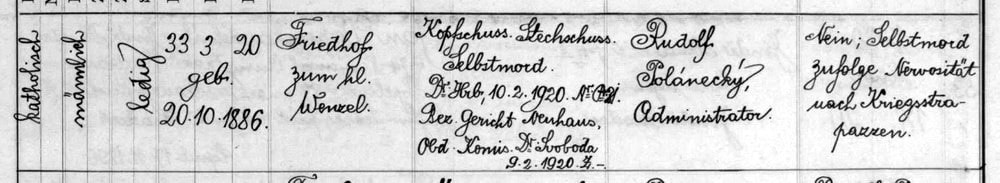 katholisch
männlich
ledig
33 3 20
geb.
20.10.1886.
Friedhof
zum hl.
Wenzel.
Kopfschuss. Stechschuss.
Selbstmord.
Dr. Hrb, 10.2.1920. Nr.
Bez. Gericht Neuhaus,
Obd. Komis. Dr. Svoboda
9.2.1920. Z.–
Rudolf
Polánecký,
Administrator.
Nein; Selbstmord
zufolge Nervosität
nach Kriegsstra-
pazzen.